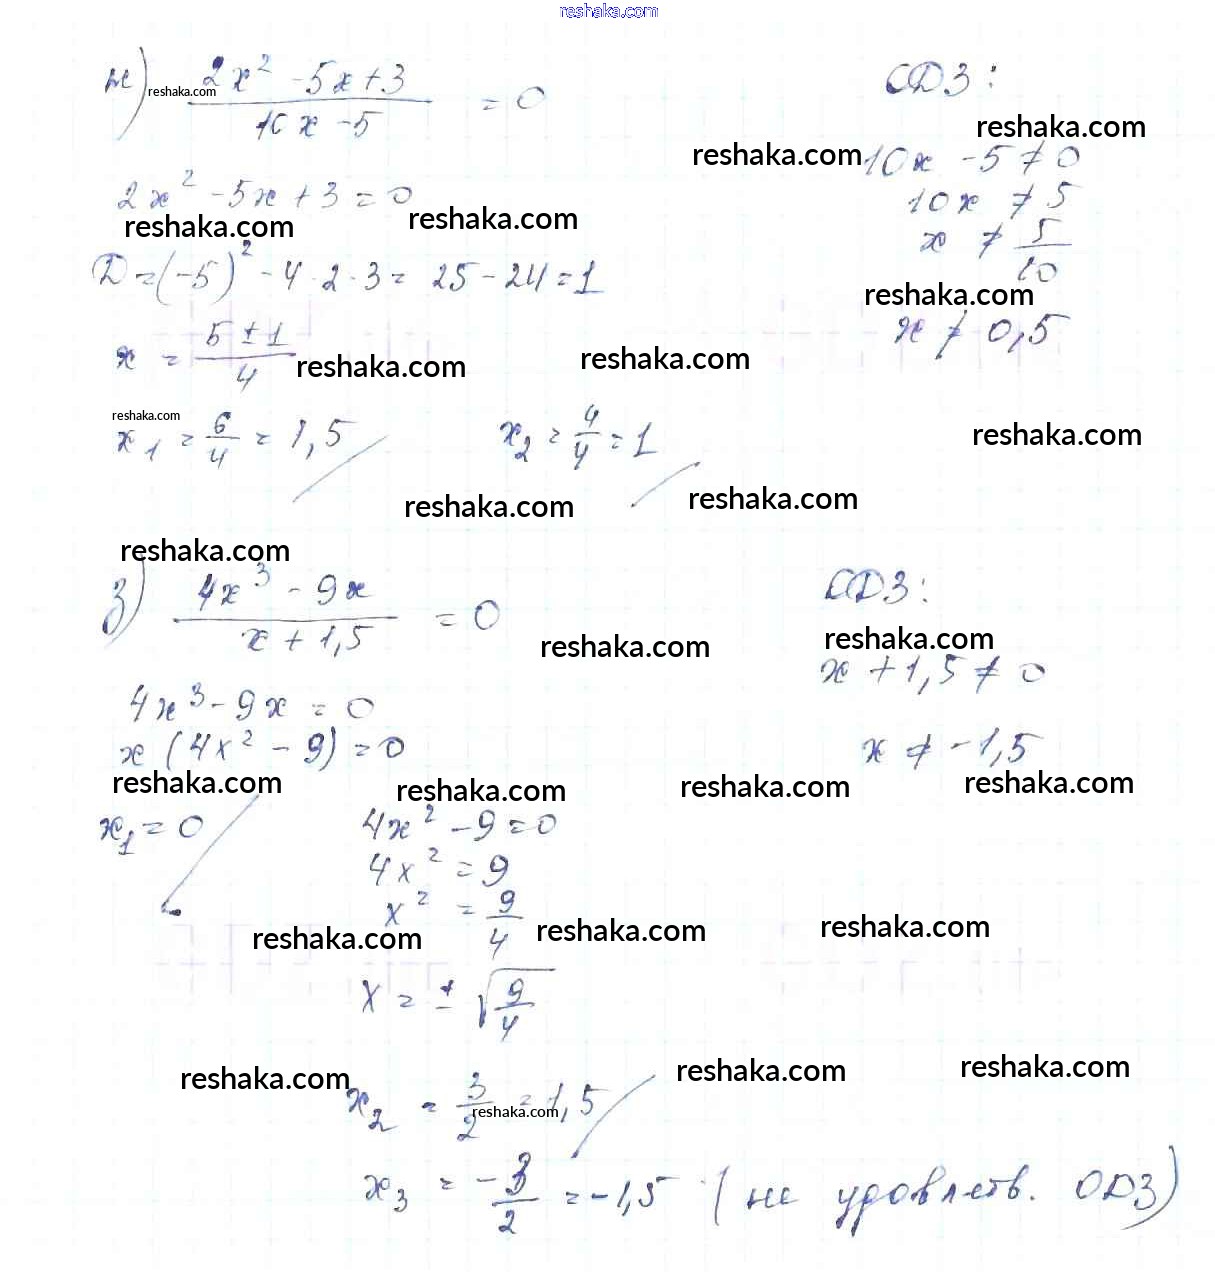 reshaka.com
ж) (2x² - 5x + 3)/(10x - 5) = 0
ОДЗ:
reshaka.com
reshaka.com
reshaka.com
10x - 5 ≠ 0
2x² - 5x + 3 = 0
10x ≠ 5
reshaka.com
reshaka.com
x ≠ 5/10
D = (-5)² - 4 · 2 · 3 = 25 - 24 = 1
reshaka.com
x ≠ 0,5
x = (5 ± 1)/4
reshaka.com
reshaka.com
reshaka.com
x₁ = 6/4 = 1,5
x₂ = 4/4 = 1
reshaka.com
reshaka.com
reshaka.com
reshaka.com
з) (4x³ - 9x)/(x + 1,5) = 0
ОДЗ:
reshaka.com
reshaka.com
x + 1,5 ≠ 0
4x³ - 9x = 0
x (4x² - 9) = 0
x ≠ -1,5
reshaka.com
reshaka.com
reshaka.com
reshaka.com
x₁ = 0
4x² - 9 = 0
4x² = 9
x² = 9/4
reshaka.com
reshaka.com
reshaka.com
x = ± √(9/4)
reshaka.com
reshaka.com
reshaka.com
x₂ = 3/2 = 1,5
reshaka.com
x₃ = -3/2 = -1,5 (не удовлетв. ОДЗ)